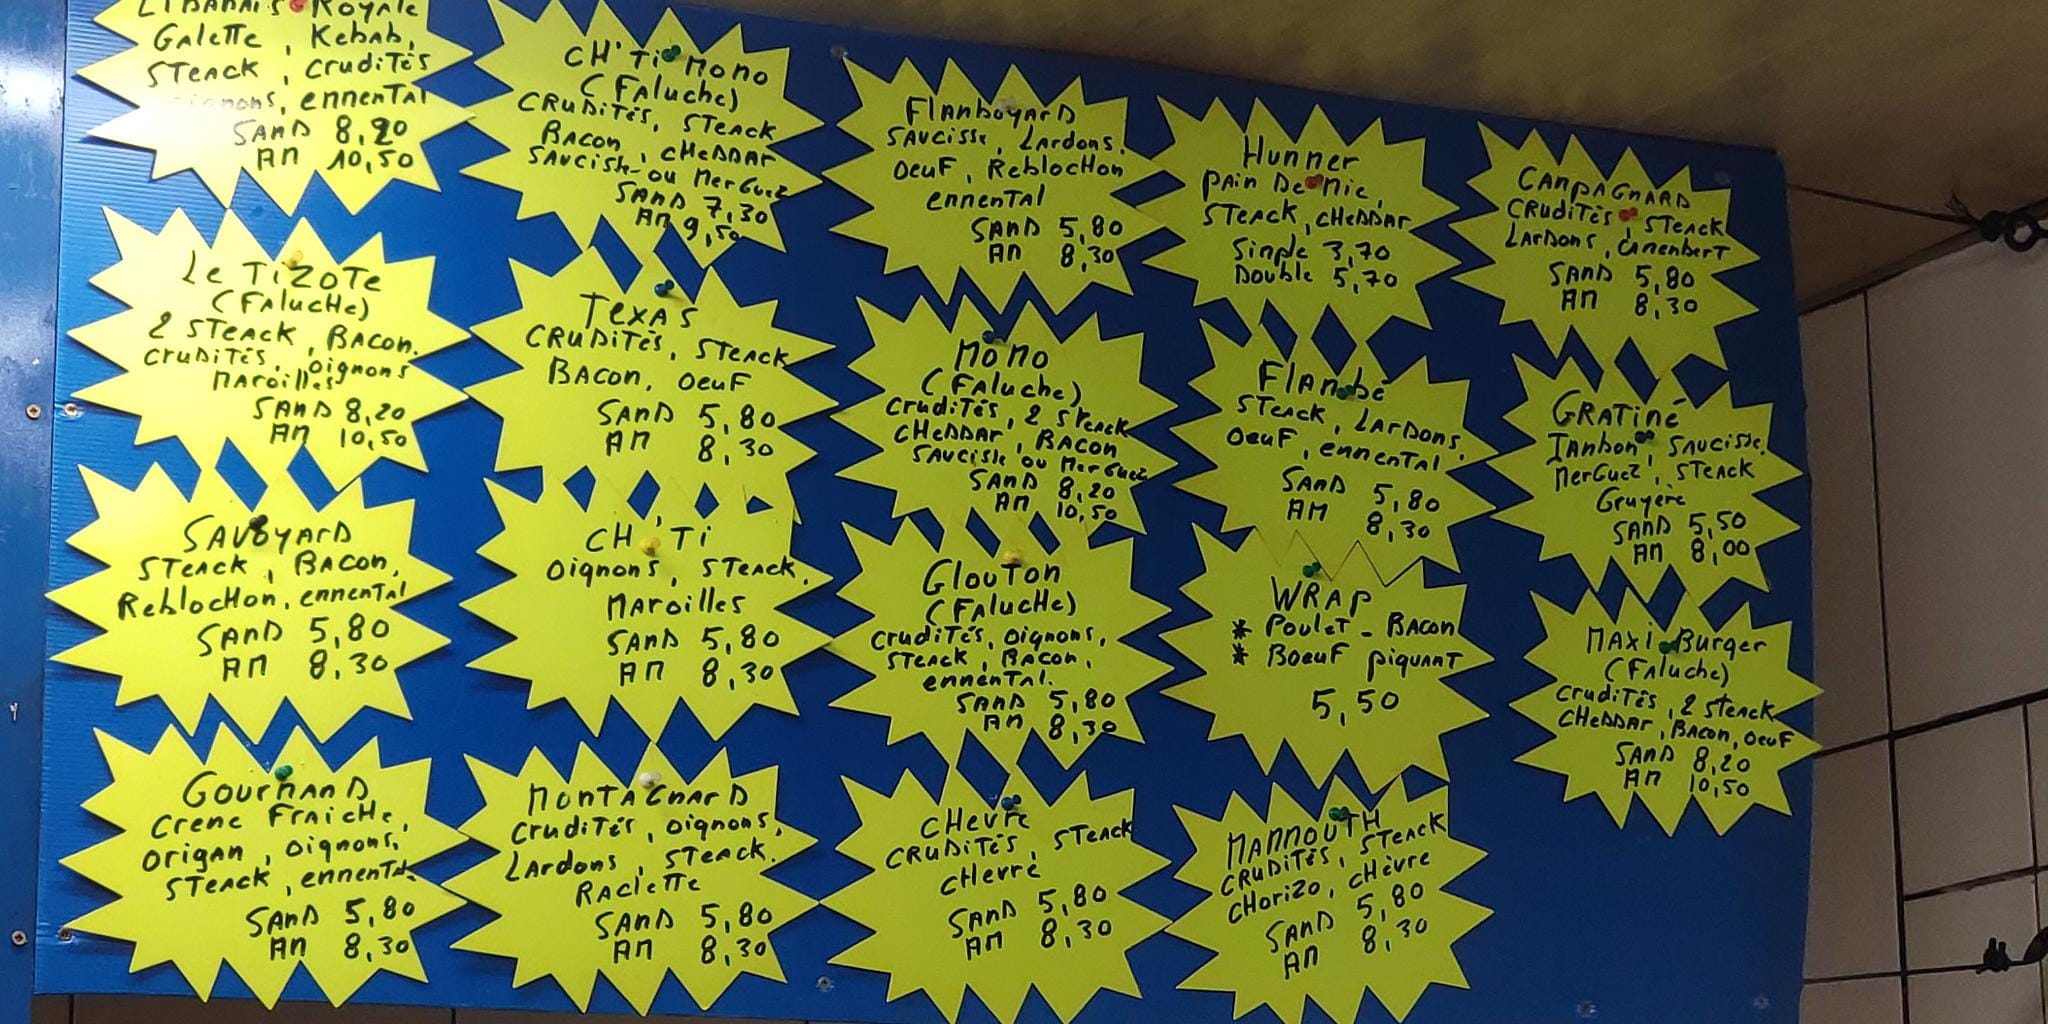 Libanais Royale
Galette, Kebab,
Steack, crudités
oignons, emmental
Sand 8,20
AM 10,50
CH'Ti Momo
(Faluche)
Crudités, Steack
Bacon, cheddar
Saucisse ou Merguez
Sand 7,30
AM 9,50
Flamboyard
Saucisse, Lardons.
Oeuf, Reblochon
emmental
Sand 5,80
AM 8,30
Hummer
Pain De Mie,
Steack, cheddar
Simple 3,70
Double 5,70
Campagnard
Crudités, Steack
Lardons, Camenbert
Sand 5,80
AM 8,30
Le Tizote
(Faluche)
2 Steack, Bacon.
crudités, oignons
Maroilles
Sand 8,20
AM 10,50
Texas
Crudités, Steack
Bacon, oeuf
Sand 5,80
AM 8,30
Momo
(Faluche)
crudités, 2 steack
cheddar, Bacon
Saucisse ou Merguez
Sand 8,20
AM 10,50
Flambé
Steack, Lardons,
oeuf, emmental.
Sand 5,80
AM 8,30
Gratiné
Jambon, Saucisse,
Merguez, Steack
Gruyère
Sand 5,50
AM 8,00
Savoyard
Steack, Bacon,
Reblochon, emmental
Sand 5,80
AM 8,30
CH'Ti
Oignons, Steack,
Maroilles
Sand 5,80
AM 8,30
Glouton
(Faluche)
crudités, oignons,
Steack, Bacon,
emmental.
Sand 5,80
AM 8,30
WRAP
* Poulet - Bacon
* Boeuf piquant
5,50
Maxi Burger
(Faluche)
crudités, 2 steack
cheddar, Bacon, oeuf
Sand 8,20
AM 10,50
Gourmand
Creme Fraiche,
origan, oignons,
Steack, emmental
Sand 5,80
AM 8,30
Montagnard
Crudités, oignons,
Lardons, Steack.
Raclette
Sand 5,80
AM 8,30
Chevre
Crudités, Steack
chevre
Sand 5,80
AM 8,30
Mammouth
Crudités, Steack
Chorizo, chèvre
Sand 5,80
AM 8,30